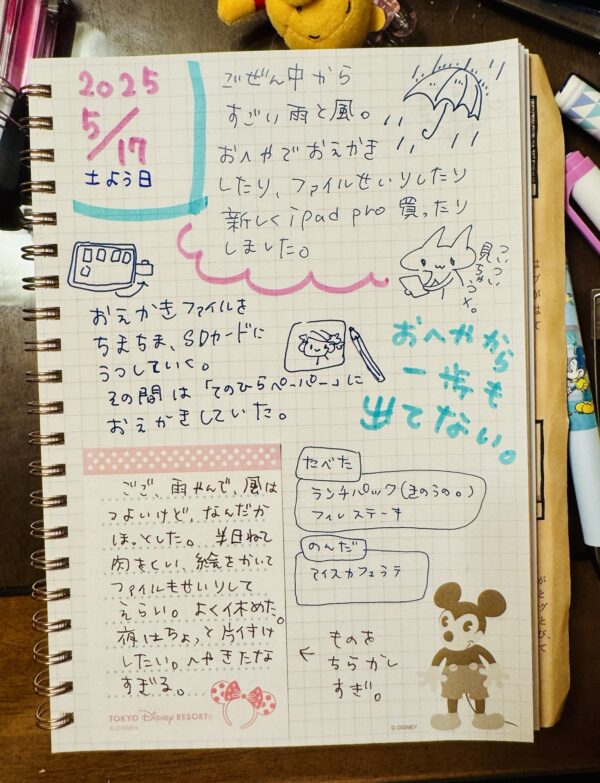 2025
5/17
土よう日
ごぜん中から
すごい雨と風。
おへやでおえかき
したり、ファイルせいりしたり
新しくipad pro 買ったり
しました。
ついつい
見ちゃい
おえかきファイルを
ちまちま、SDカードに
うつしていく。
その間は「てのひらペーパー」に
おえかきしていた。
おへやから
一歩も
出てない。
ごご、雨やんで、風は
つよいけど、なんだか
ほっとした。半日ねて
肉をくい、絵をかいて
ファイルもせいりして
えらい。よく休めた。
夜はちょっと片付け
したい。へやきたな
すぎる。
TOKYO Disney RESORT®
© DISNEY
たべた
ランチパック(きのうの。)
フィレステーキ
のんだ
アイスカフェラテ
← ものを
ちらかし
すぎ。
© DISNEY